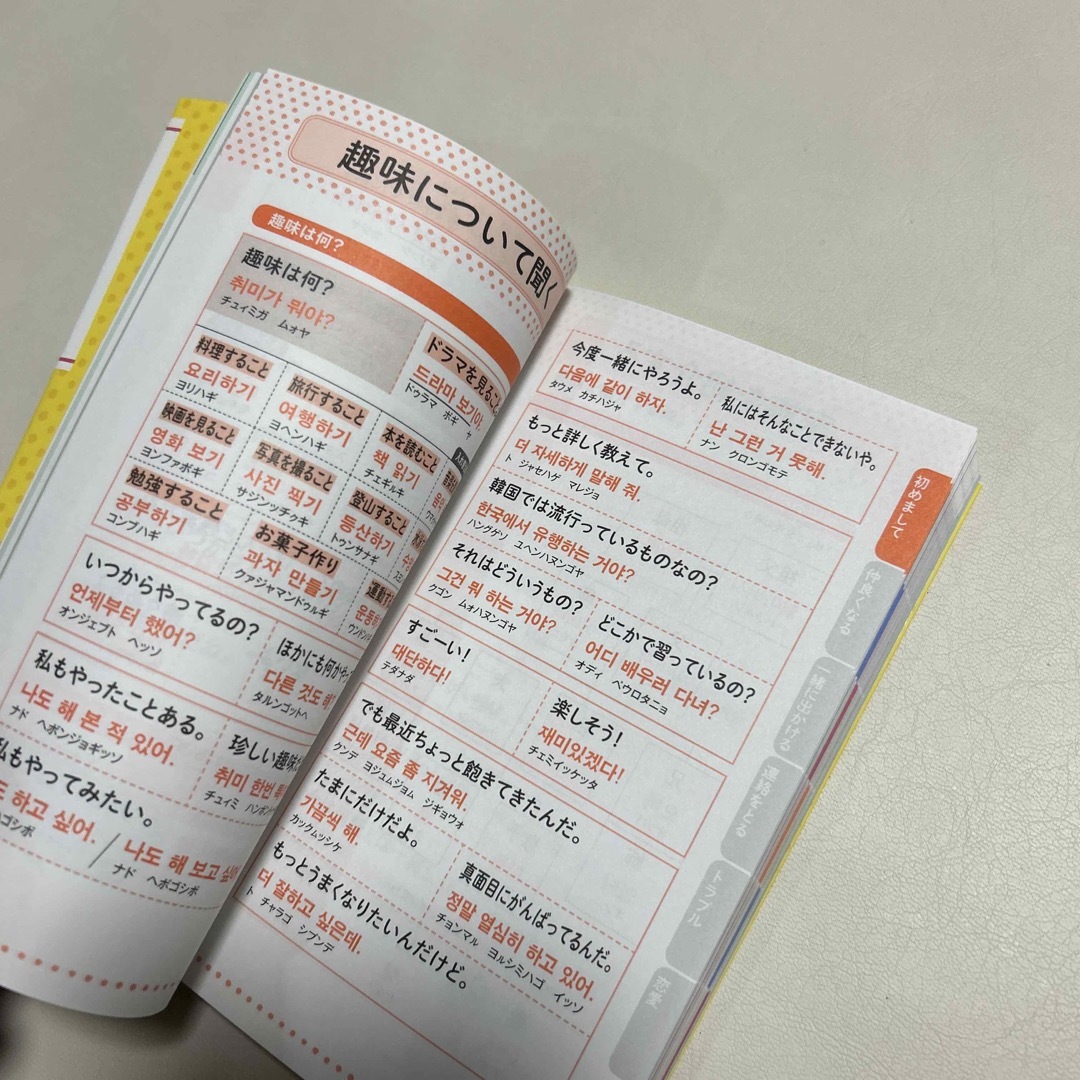 趣味について聞く
趣味は何?
趣味は何?
취미가 뭐야?
チュィミガ ムォヤ
ドラマを見ること
드라마 보기야.
ドゥラマ ボギ ヤ
料理すること
요리하기
ヨリハギ
旅行すること
여행하기
ヨヘンハギ
本を読むこと
책 읽기
チェギルギ
映画を見ること
영화 보기
ヨンファボギ
写真を撮ること
사진 찍기
サジンッチクギ
登山すること
등산하기
トゥンサナギ
勉強すること
공부하기
コンブハギ
お菓子作り
과자 만들기
クァジャマンドゥルギ
運動す
운동
ウンドン
いつからやってるの?
언제부터 했어?
オンジェブト ヘッソ
ほかにも何かや
다른 것도 해
タルンゴットヘ
私もやったことある。
나도 해 본 적 있어.
ナド ヘボンジョギッソ
珍しい趣味
취미 한번
チュィミ ハンボン
私もやってみたい。
하고 싶어.
ハゴシポ
/ 나도 해 보고 싶어.
ナド ヘボゴシポ
今度一緒にやろうよ。
다음에 같이 하자.
タウメ カチハジャ
私にはそんなことできないや。
난 그런 거 못해.
ナン クロンゴモテ
もっと詳しく教えて。
더 자세하게 말해 줘.
ト ジャセハゲ マレジョ
韓国では流行っているものなの?
한국에서 유행하는 거야?
ハングゲソ ユヘンハヌンゴヤ
それはどういうもの?
그건 뭐 하는 거야?
クゴン ムォハヌンゴヤ
どこかで習っているの?
어디 배우러 다녀?
オディ ベウロタニョ
すごーい!
대단하다!
テダナダ
楽しそう!
재미있겠다!
チェミイッケッタ
でも最近ちょっと飽きてきたんだ。
근데 요즘 좀 지겨워.
クンデ ヨジュムジョム ジギョウォ
たまにだけだよ。
가끔씩 해.
カックムッシケ
真面目にがんばってるんだ。
정말 열심히 하고 있어.
チョンマル ヨルシミハゴ イッソ
もっとうまくなりたいんだけど。
더 잘하고 싶은데.
ト チャラゴ シプンデ
初めまして
仲良くなる
一緒に出かける
連絡をとる
トラブル
恋愛